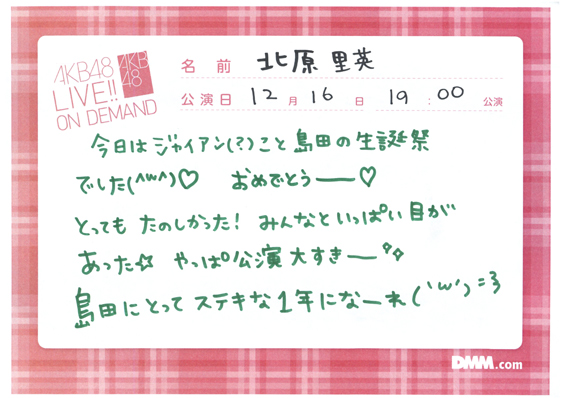 AKB48
LIVE!!
ON DEMAND
AKB
48
名前 北原里英
公演日 12月16日 19:00公演
今日はジャイアン(?)こと島田の生誕祭
でした(^w^)♡ おめでとうー♡
とっても たのしかった! みんなといっぱい目が
あった☆ やっぱ公演大すきー
島田にとってステキな1年になーれ('w')=3
DMM.com